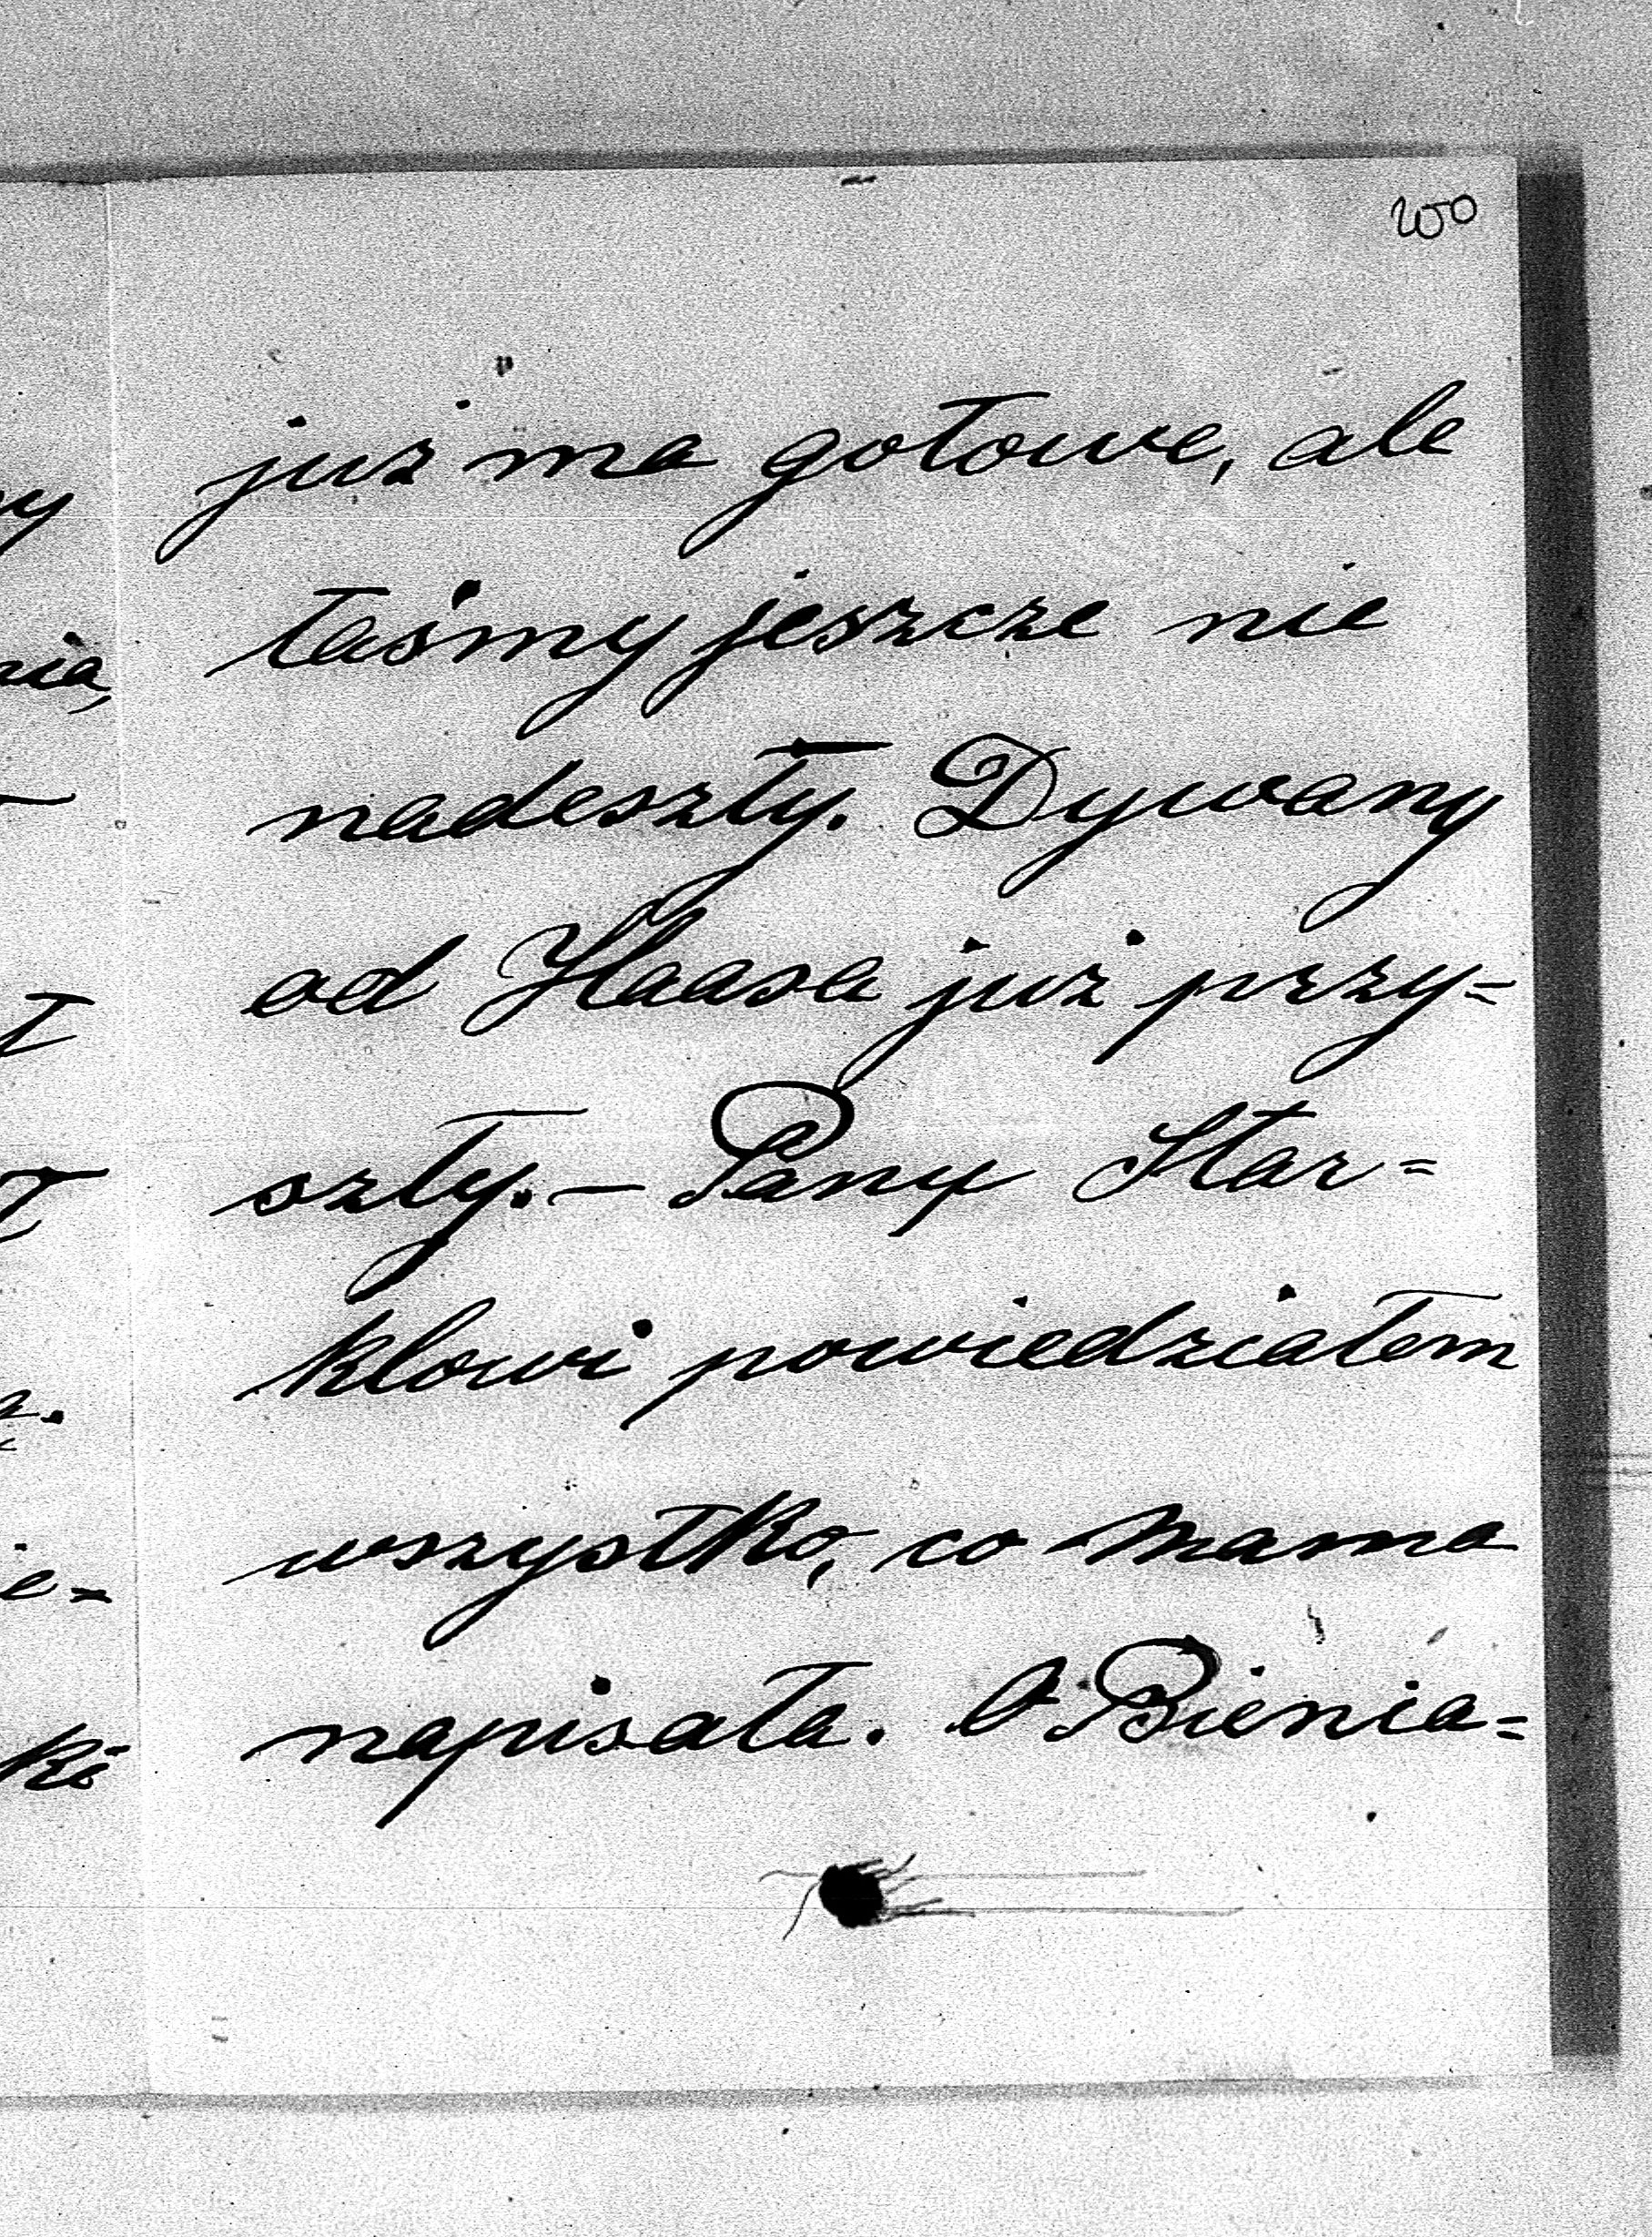 250
już ma gotowe, ale
taśmy jeszcze nie
nadeszły. Dywany
od Haasa już przy-
szły. — Panu Star=
klowi powiedziałem
wszystko, co Mama
napisała. O Bienia=